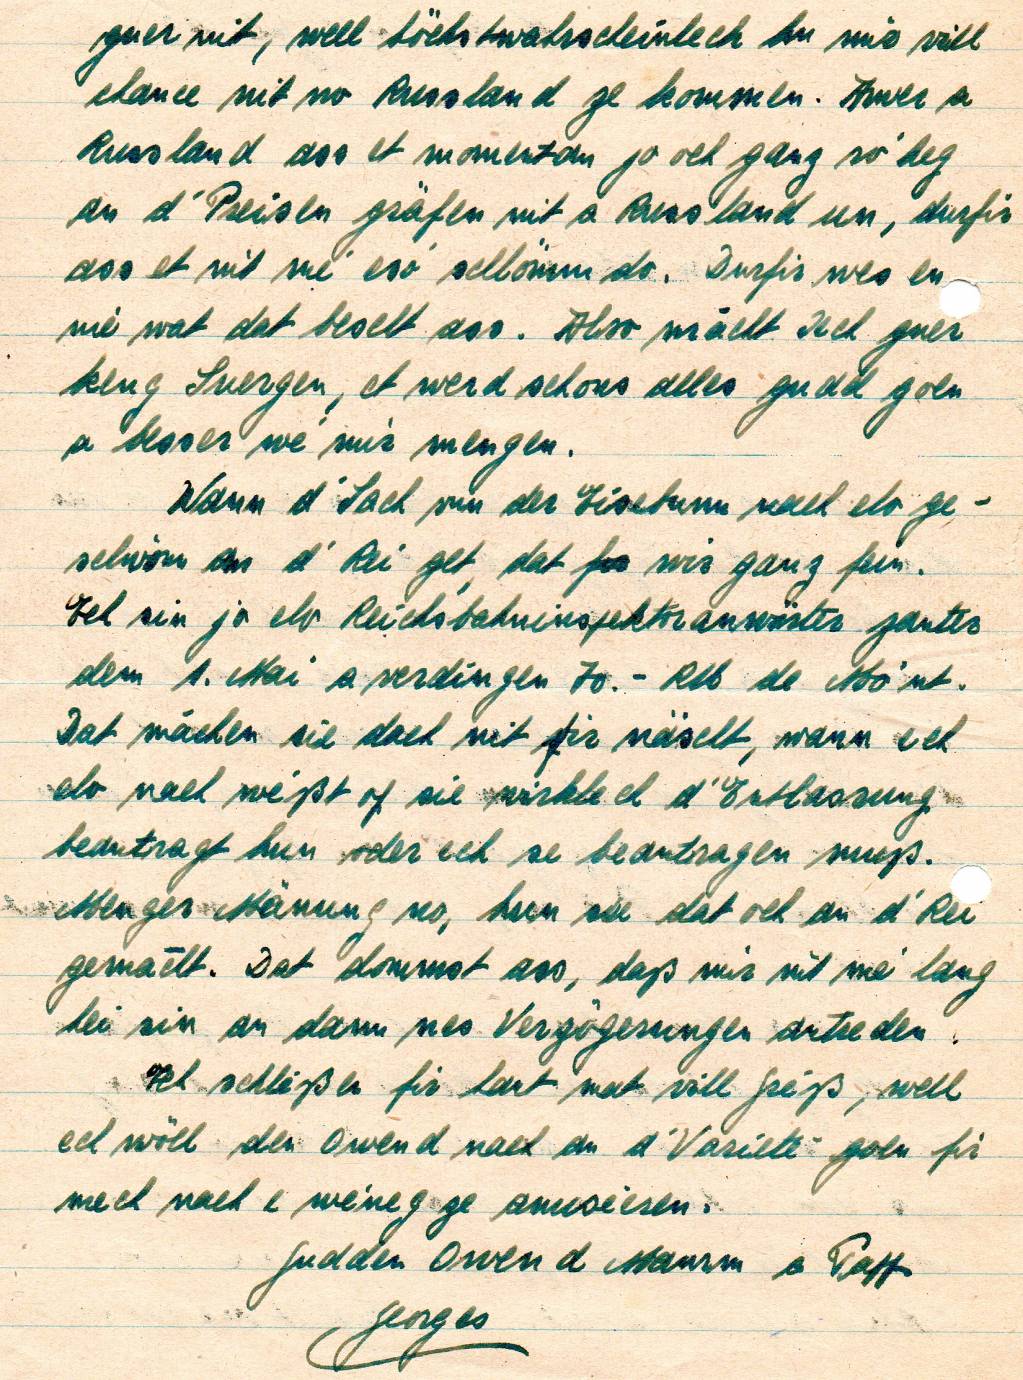 guer nit, well höchstwahrscheinlech hu mir vill
chance nit no Russland ze kommen. Awer a
Russland ass et momentan jo och ganz ró'heg
an d'Preisen gräfen nit a Russland un, durfir
ass et nit mé esó schlömm do. Durfir wes en
nië wat dat beselt ass. Also mācht Iech guer
keng Suergen, et werd schons alles gudd goen
a besser wé mir mengen.
Wann d'Sach vun der Eisebunn nach elo ge-
schwönn an d'Rei get, dat wir ganz fein.
Ech sin jo elo Reichsbahninspektoranwärter zanter
dem 1. Mai a verdingen 70.- RM de Mó'nt.
Dat māchen sie dach nit fir näischt, wann ech
elo nach wéißt of sie wirklech d'Entlassung
beantragt hun oder ech se beantragen muß.
Menger Mänung no, hun sie dat och an d'Rei
gemācht. Dat dommst ass, daß mir nit méi lang
hei sin an dann nes Verzögerungen antreden.
Ech schléißen fir haut mat vill Gréiß, well
ech wöll den Owend nach an d'Varieté goen fir
mech nach e wéineg ze amuséieren.
Gudden Owend Mamm a Papp
Georges